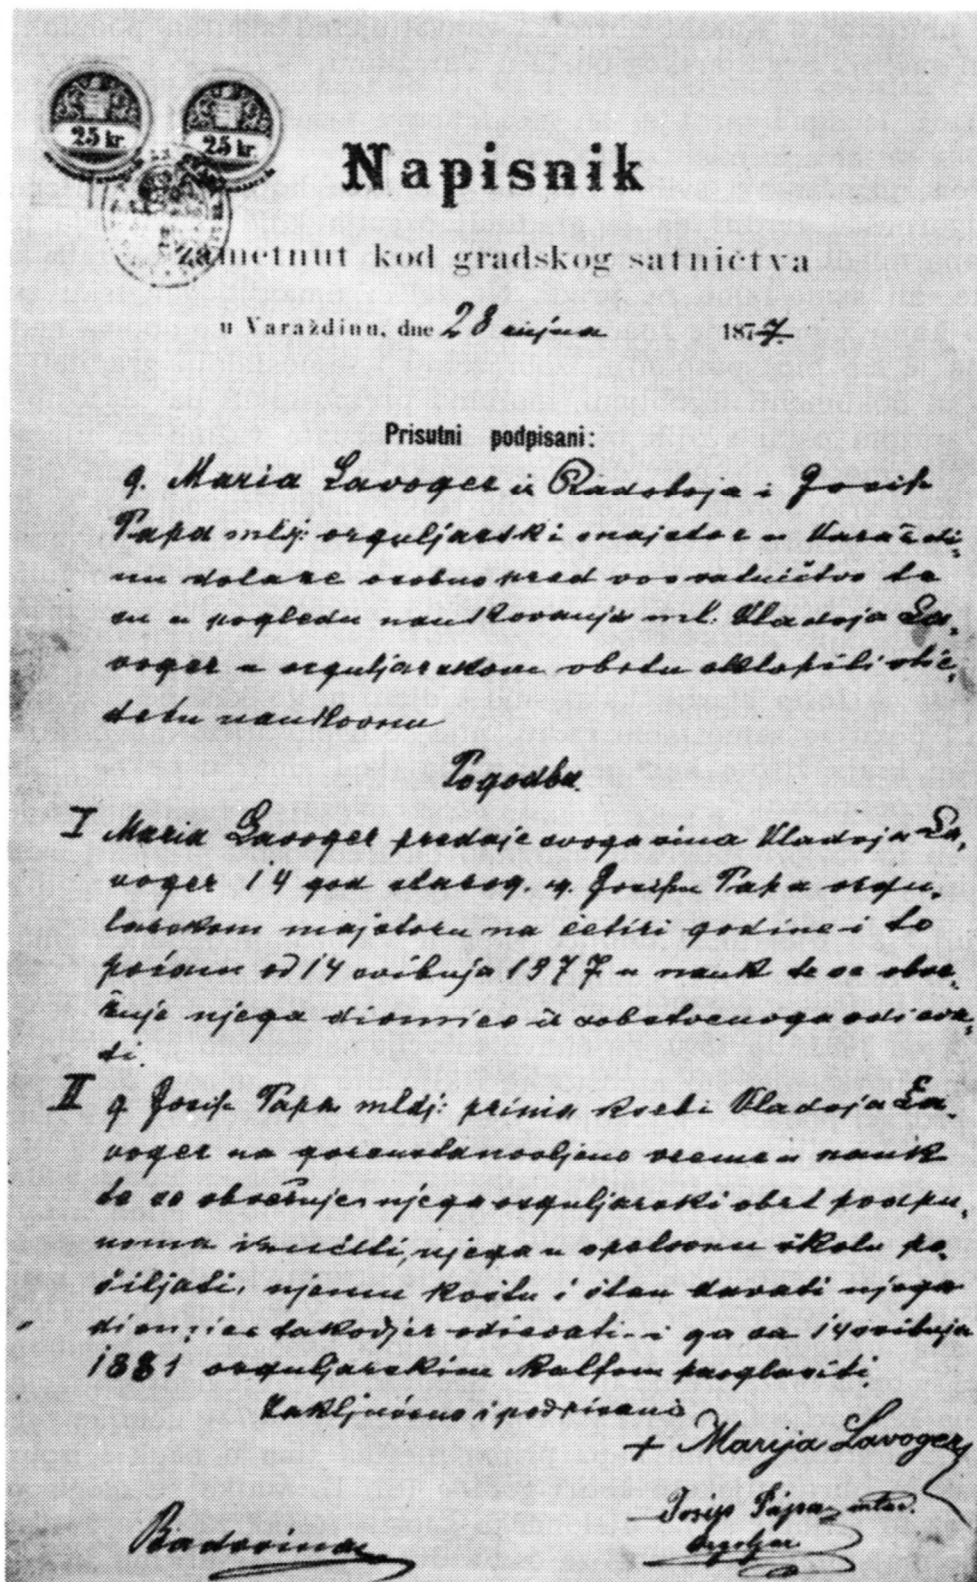 25 kr.
25 kr.
Napisnik
zametnut kod gradskog satničtva
u Varaždinu, dne 28 rujna 1877.
Prisutni podpisani:
g. Maria Lavoger iz Radoboja i Josip
Papa mldj: orguljarski majstor u Varaždi-
nu dolaze osobno pred ovo satničtvo te
su u pogledu naukovanja ml. Vladoja La-
voger u orguljarskom obrtu sklopili slie-
deću naukovnu
Pogodba.
I Maria Lavoger predaje svoga sina Vladoja La-
voger 14 god starog. g. Josipu Papa orgu-
larskom majstoru na četiri godine i to
počam od 14 svibnja 1877 u nauk te se obve-
žuje njega diomice iz sobstvenoga odieva-
ti.
II g. Josip Papa mldj: prima k sebi Vladoja La-
voger na gorenstanovljeno vreme u nauk
te se obvežuje njega orguljarski obrt podpu-
noma izučiti, njega u opetovnu školu po-
šiljati, njemu koštu i stan davati njega
diomice takodjer odievati i ga sa 14 svibnja
1881 orguljarskim kalfom proglasiti.
Zaključeno i podpisano
+ Marija Lavoger
Josip Pápa mlad.
Orguljar
Badovinac